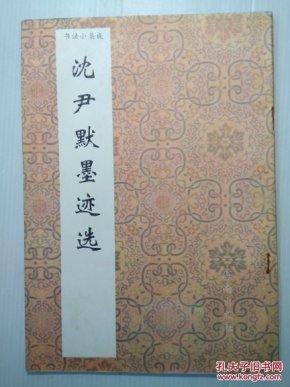 书法小集成
沈尹默墨迹选
孔夫子旧书网